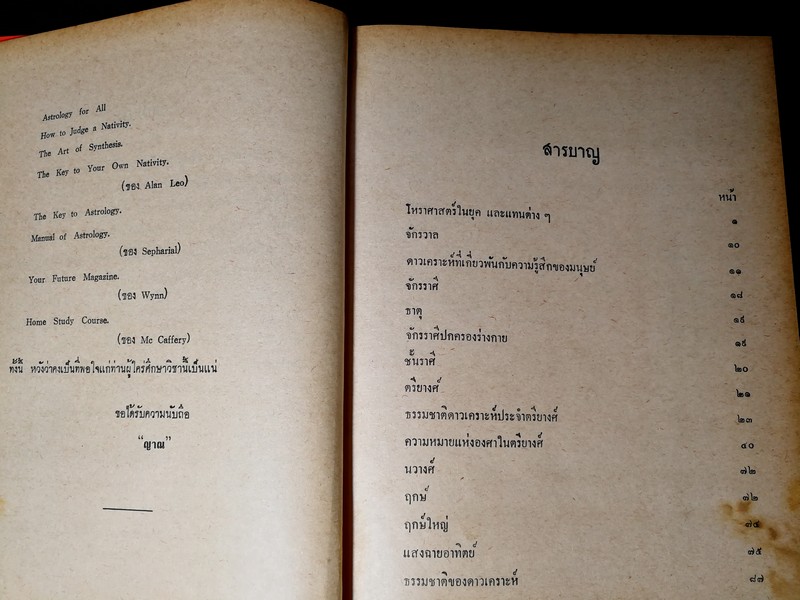 Astrology for All
How to Judge a Nativity.
The Art of Synthesis.
The Key to Your Own Nativity.
(ของ Alan Leo)
The Key to Astrology.
Manual of Astrology.
(ของ Sepharial)
Your Future Magazine.
(ของ Wynn)
Home Study Course.
(ของ Mc Caffery)
ทั้งนี้ หวังว่าคงเป็นที่พอใจแก่ท่านผู้ใคร่ศึกษาวิชานี้เป็นแน่
ขอได้รับความนับถือ
“ญาณ”
สารบาญ
หน้า
โหราศาสตร์ในยุค และแทนต่าง ๆ ๑
จักรวาล ๑๐
ดาวเคราะห์ที่เกี่ยวพันกับความรู้สึกของมนุษย์ ๑๑
จักรราศี ๑๘
ธาตุ ๑๙
จักรราศีปกครองร่างกาย ๑๙
ชั้นราศี ๒๐
ตรียางศ์ ๒๑
ธรรมชาติดาวเคราะห์ประจำตรียางศ์ ๒๓
ความหมายแห่งองศาในตรียางศ์ ๔๐
นวางศ์ ๗๒
ฤกษ์ ๗๒
ฤกษ์ใหญ่ ๗๔
แสงฉายอาทิตย์ ๗๕
ธรรมชาติของดาวเคราะห์ ๘๗